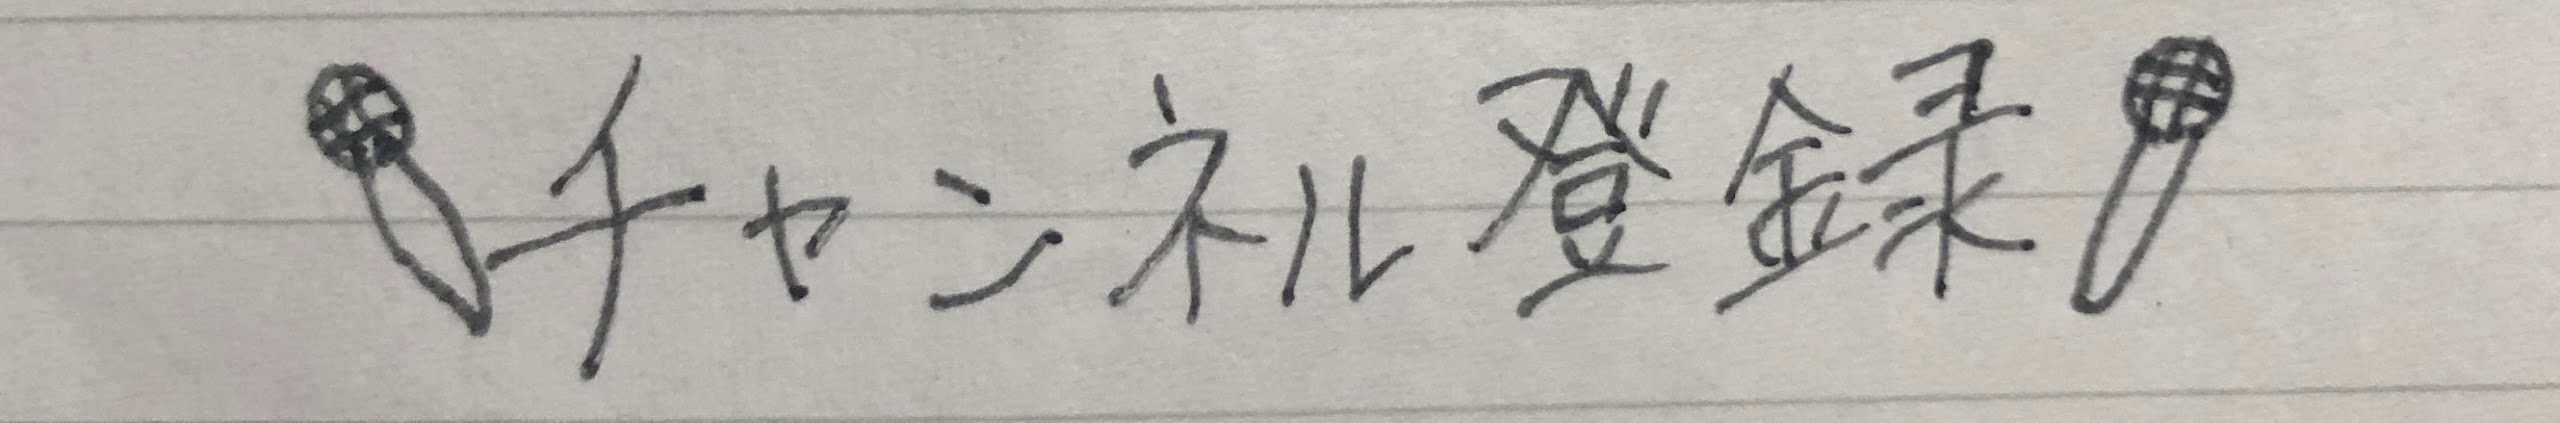 チャンネル登録